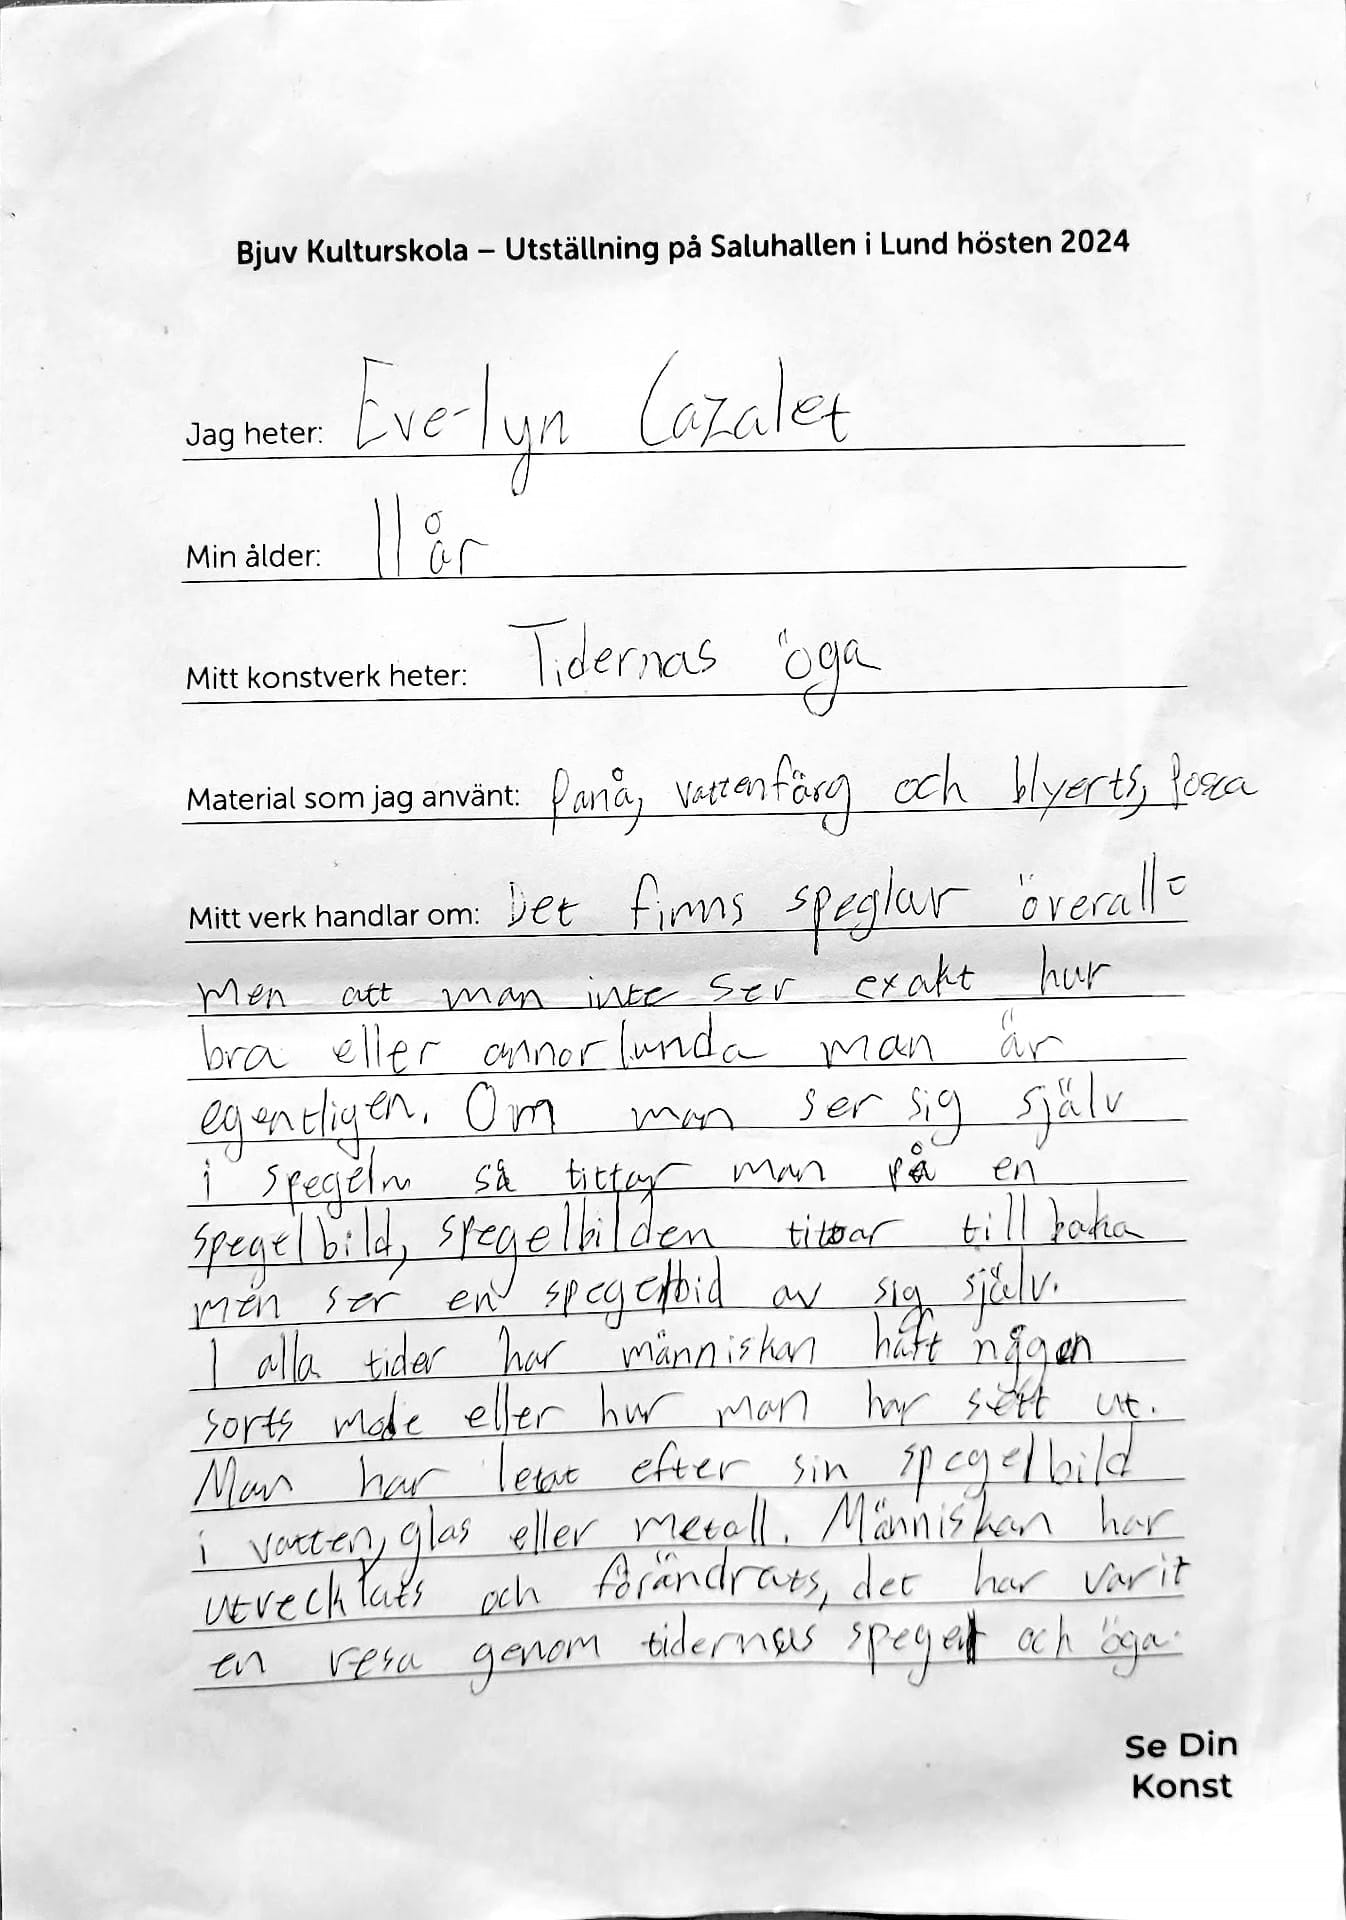 Bjuv Kulturskola – Utställning på Saluhallen i Lund hösten 2024
Jag heter: Evelyn Cazalet
Min ålder: 11 år
Mitt konstverk heter: Tidernas öga
Material som jag använt: Panå, vattenfärg och blyerts, Posca
Mitt verk handlar om: Det finns speglar överallt
men att man inte ser exakt hur
bra eller annorlunda man är
egentligen. Om man ser sig själv
i spegeln så tittar man på en
spegelbild, spegelbilden tittar tillbaka
men ser en spegelbid av sig själv.
I alla tider har människan haft någon
sorts mode eller hur man har sett ut.
Man har letat efter sin spegelbild
i vatten, glas eller metall. Människan har
utvecklats och förändrats, det har varit
en resa genom tidernas spegel och öga.
Se Din
Konst